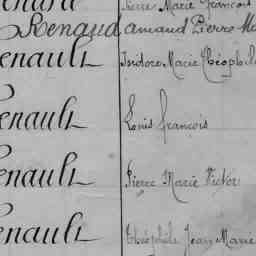 enard Pierre Marie François
Renaud amand Pierre Ma
enault Isidore Marie Théophile
enault Louis françois
enault Pierre Marie Victor
enault Théophile Jean Marie